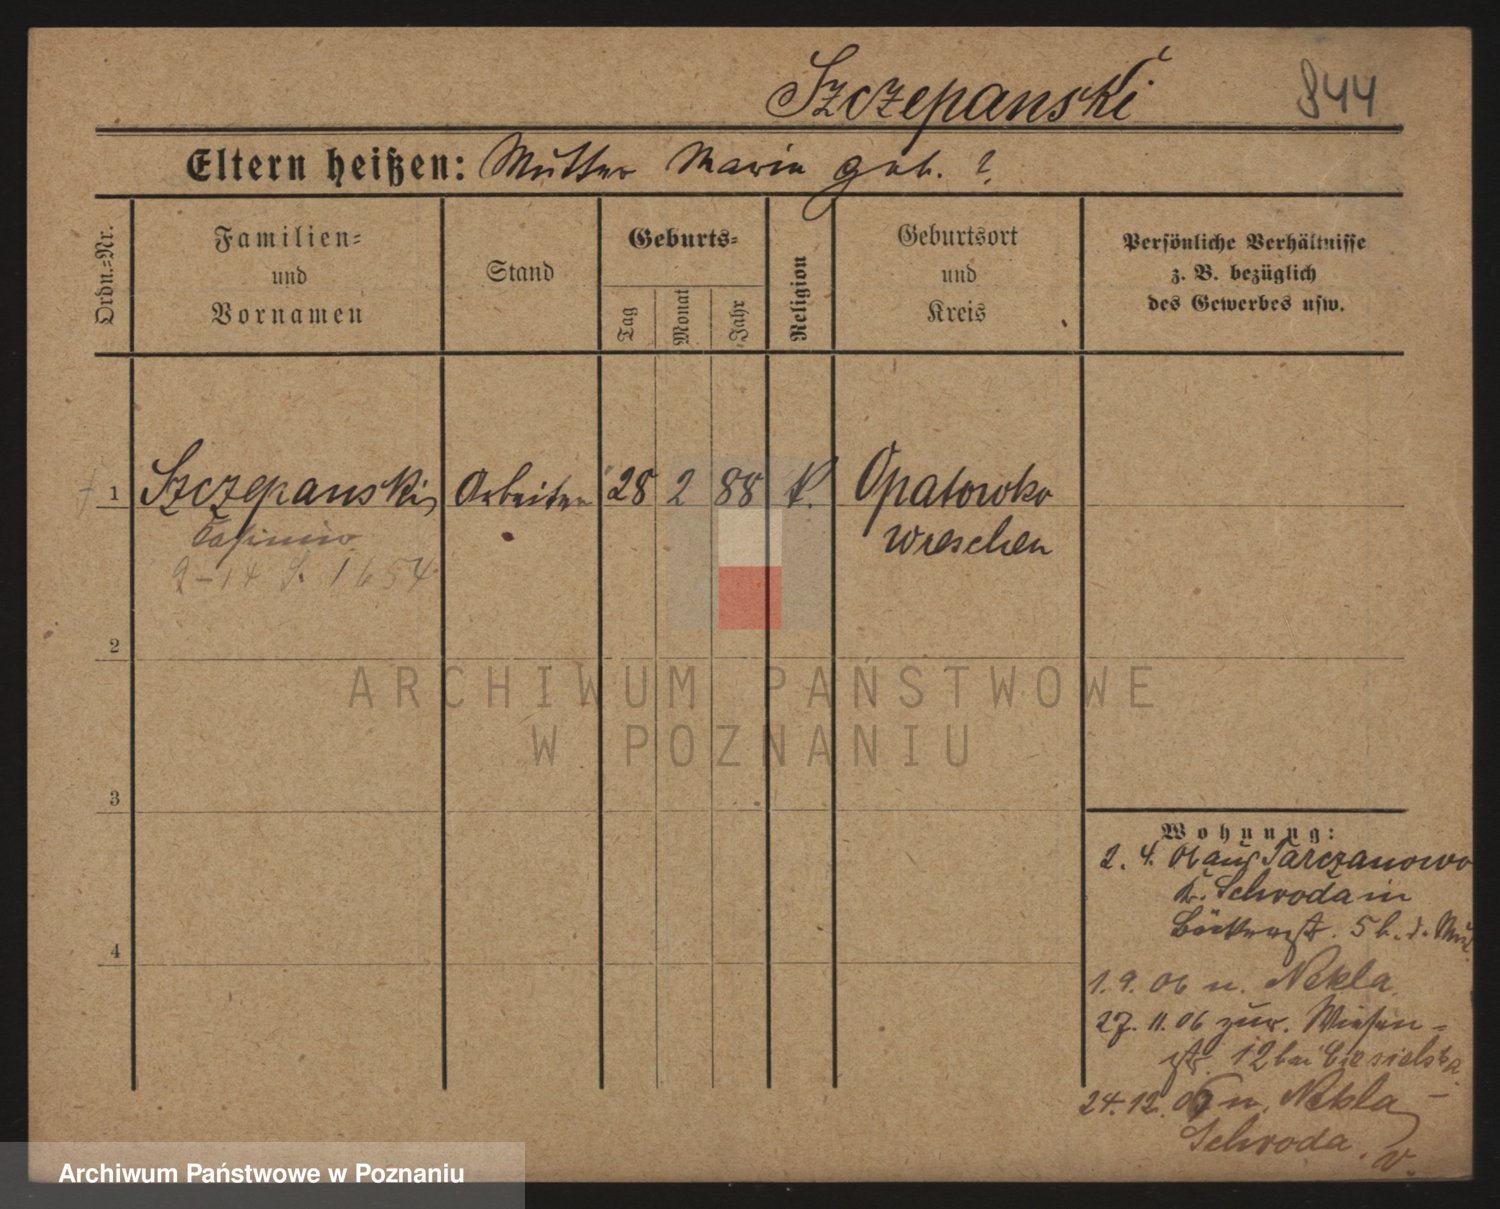 Szczepanski 844
Eltern heißen: Mutter Maria geb. ?
Ordn.-Nr.
Familien-
und
Vornamen
Stand
Geburts-
Tag
Monat
Jahr
Religion
Geburtsort
und
Kreis
Persönliche Verhältnisse
z. B. bezüglich
des Gewerbes usw.
1 Szczepanski, Arbeiter 28 2 88 k. Opatowko
Casimir Wreschen
9-14 S. 1654
2
3
4
ARCHIWUM PAŃSTWOWE
W POZNANIU
Wohnung:
2. 4. 06 aus Tarczanowo
K. Schroda in
Bäckerstr. 5 b. d.
1. 9. 06 n. Nekla
27. 11. 06 zur. Wiesen-
str. 12 bei Ciesielska
24. 12. 06 n. Nekla -
Schroda. v.
Archiwum Państwowe w Poznaniu